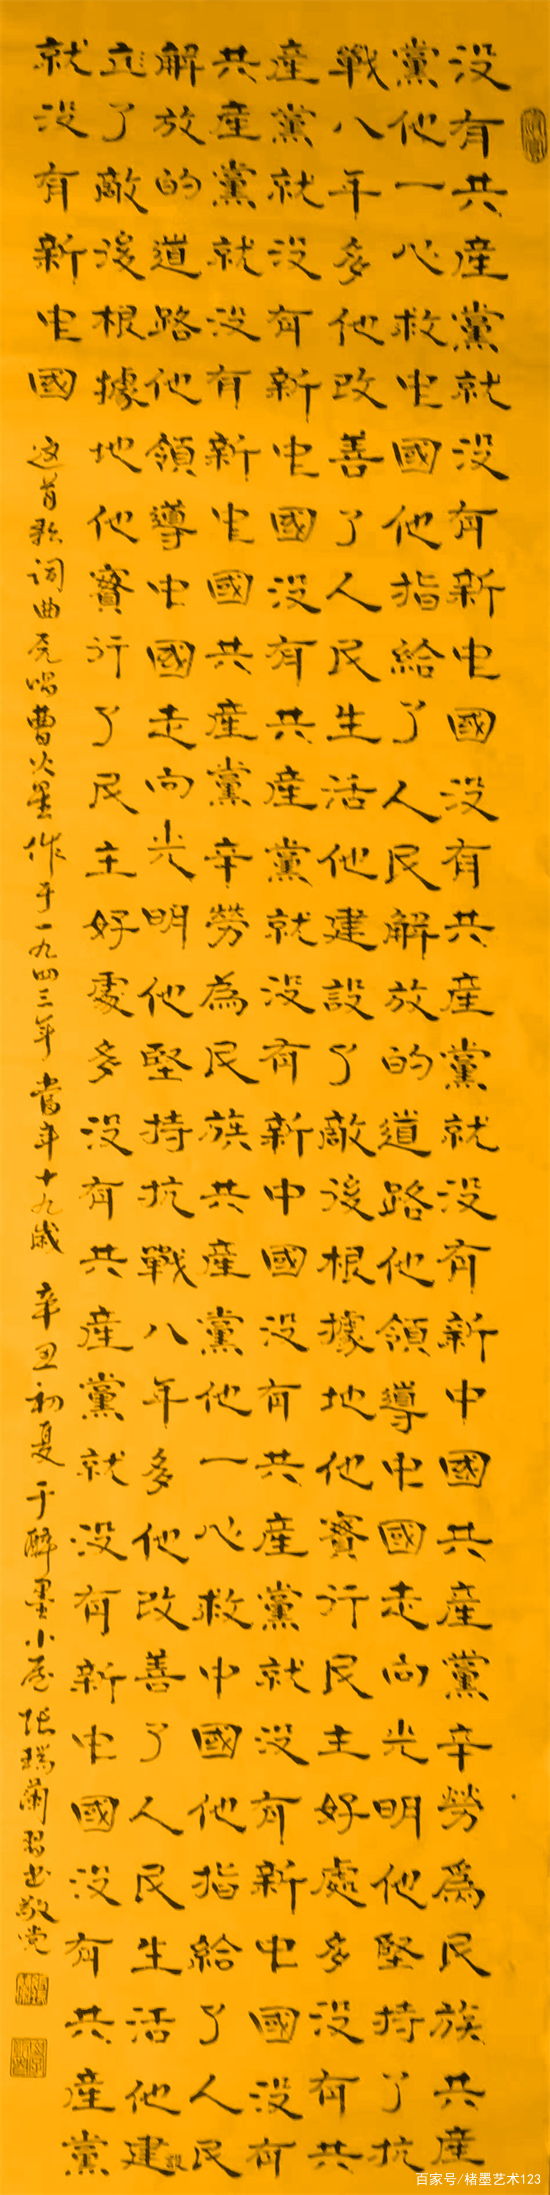 没有共産黨就没有新中國没有共産黨就没有新中國共産黨辛勞為民族共産
黨他一心救中國他指給了人民解放的道路他領導中國走向光明他堅持了抗
戰八年多他改善了人民生活他建設了敵後根據地他實行民主好處多没有共
産黨就没有新中國没有共産黨就没有新中國没有共産黨就没有新中國没有
共産黨就没有新中國共産黨辛勞為民族共産黨他一心救中國他指給了人民
解放的道路他領導中國走向光明他堅持抗戰八年多他改善了人民生活他建設
了敵後根據地他實行了民主好處多没有共産黨就没有新中國没有共産黨
就没有新中國
这首歌词曲唱曹火星作于一九四三年 當年十九歲 辛丑初夏于醉墨小屋張瑞蘭習书敬党
百家号/楮墨艺术123